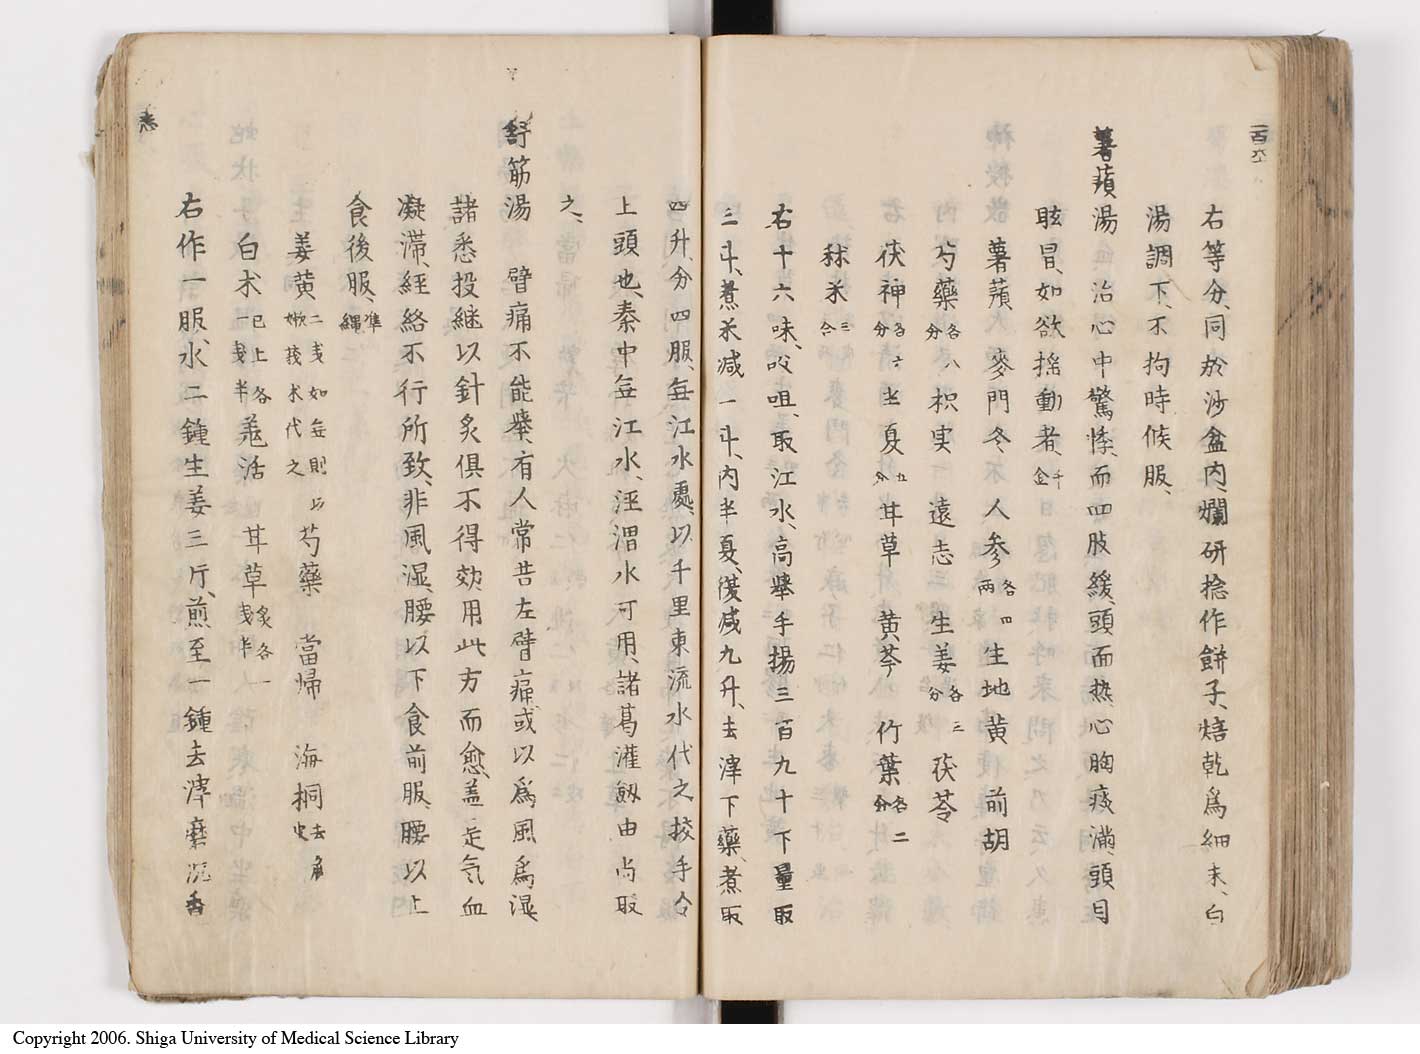 右等分、同於沙盆内、爛研捻作餅子、焙乾為細末、白
湯調下、不拘時候服、
薯蕷湯 治心中驚悸、而四肢緩、頭面热心胸痰滿、頭目
眩冒、如欲搖動者、千金
薯蕷 麥門冬 人参各四両 生地黄 前胡
芍藥各八分 枳実 遠志 生姜各三分 茯苓
茯神各六分 半夏五分 甘草 黄芩 竹葉各二分
秫米三合
右十六味、㕮咀、取江水、高舉手揚三百九十下量取
三斗、煮米减一斗、内半夏、復减九升、去滓下藥、煮取
四升、分四服、每江水處、以千里東流水代之挍手令
上頭也、秦中每江水、涇渭水可用、諸葛灌劔由尚取
之、
舒筋湯 臂痛不能舉、有人常苦左臂痛、或以為風為湿
諸悉投継以針炙俱不得効用此方而愈、盖是氣血
凝滞、經絡不行所致、非風湿、腰以下食前服、腰以上
食後服、準縄
姜黄二戔如無則以嫩莪朮代之 芍藥 當帰 海桐去角皮
白朮已上各一戔半 羗活 甘草炙各一戔半
右作一服、水二鍾生姜三斤、煎至一鍾去滓、磨沉香
Copyright 2006. Shiga University of Medical Science Library